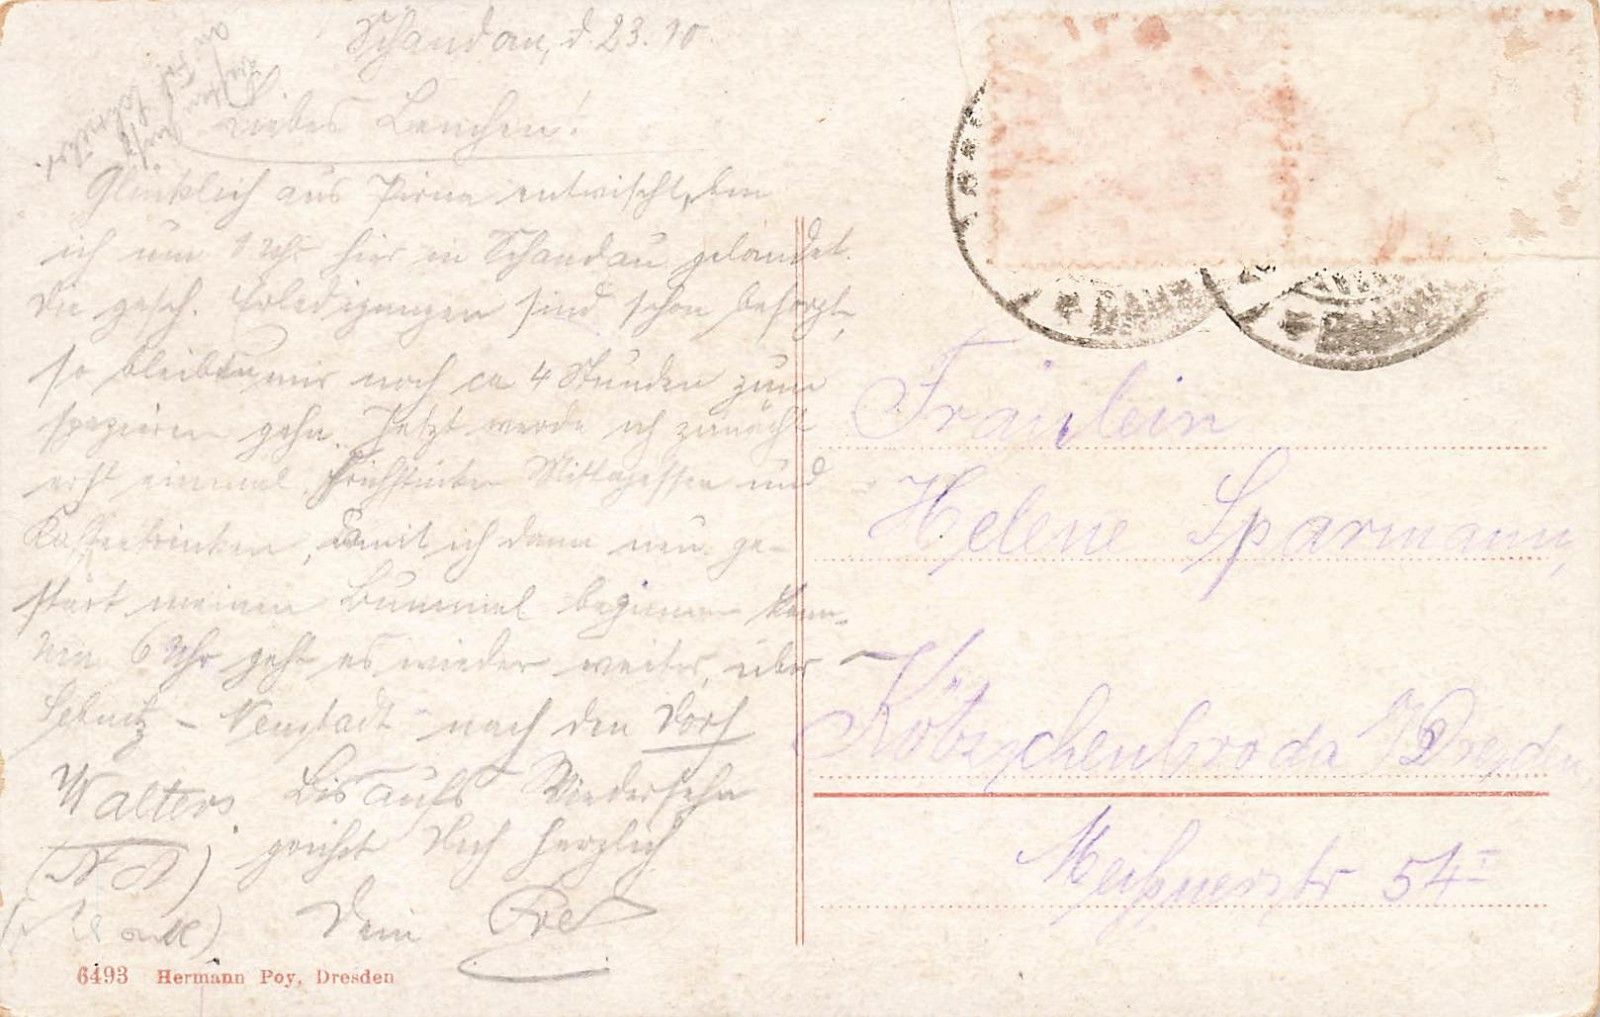 Schandau, d. 23. 10.
Liebes Lenchen!
Glücklich aus Pirna entwischt, bin
ich um 1 Uhr hier in Schandau gelandet.
Die gesch. Erledigungen sind schon besorgt,
so bleiben mir noch ca 4 Stunden zum
spazieren gehn. Jetzt werde ich zunächst
erst einmal Frühstücken Mittagessen und
Kaffeetrinken, damit ich dann neu ge-
stärt meinen Bummel beginnen kann.
Um 6 Uhr geht es wieder weiter, über
Sebnitz - Neustadt nach den Dorf
Walters. Bis aufs Wiedersehn
grüßt Dich herzlich
Dein
Fräulein
Helene Sparmann,
Kötzschenbroda /Dresden.
Meißnerstr 54 I
6493 Hermann Poy, Dresden